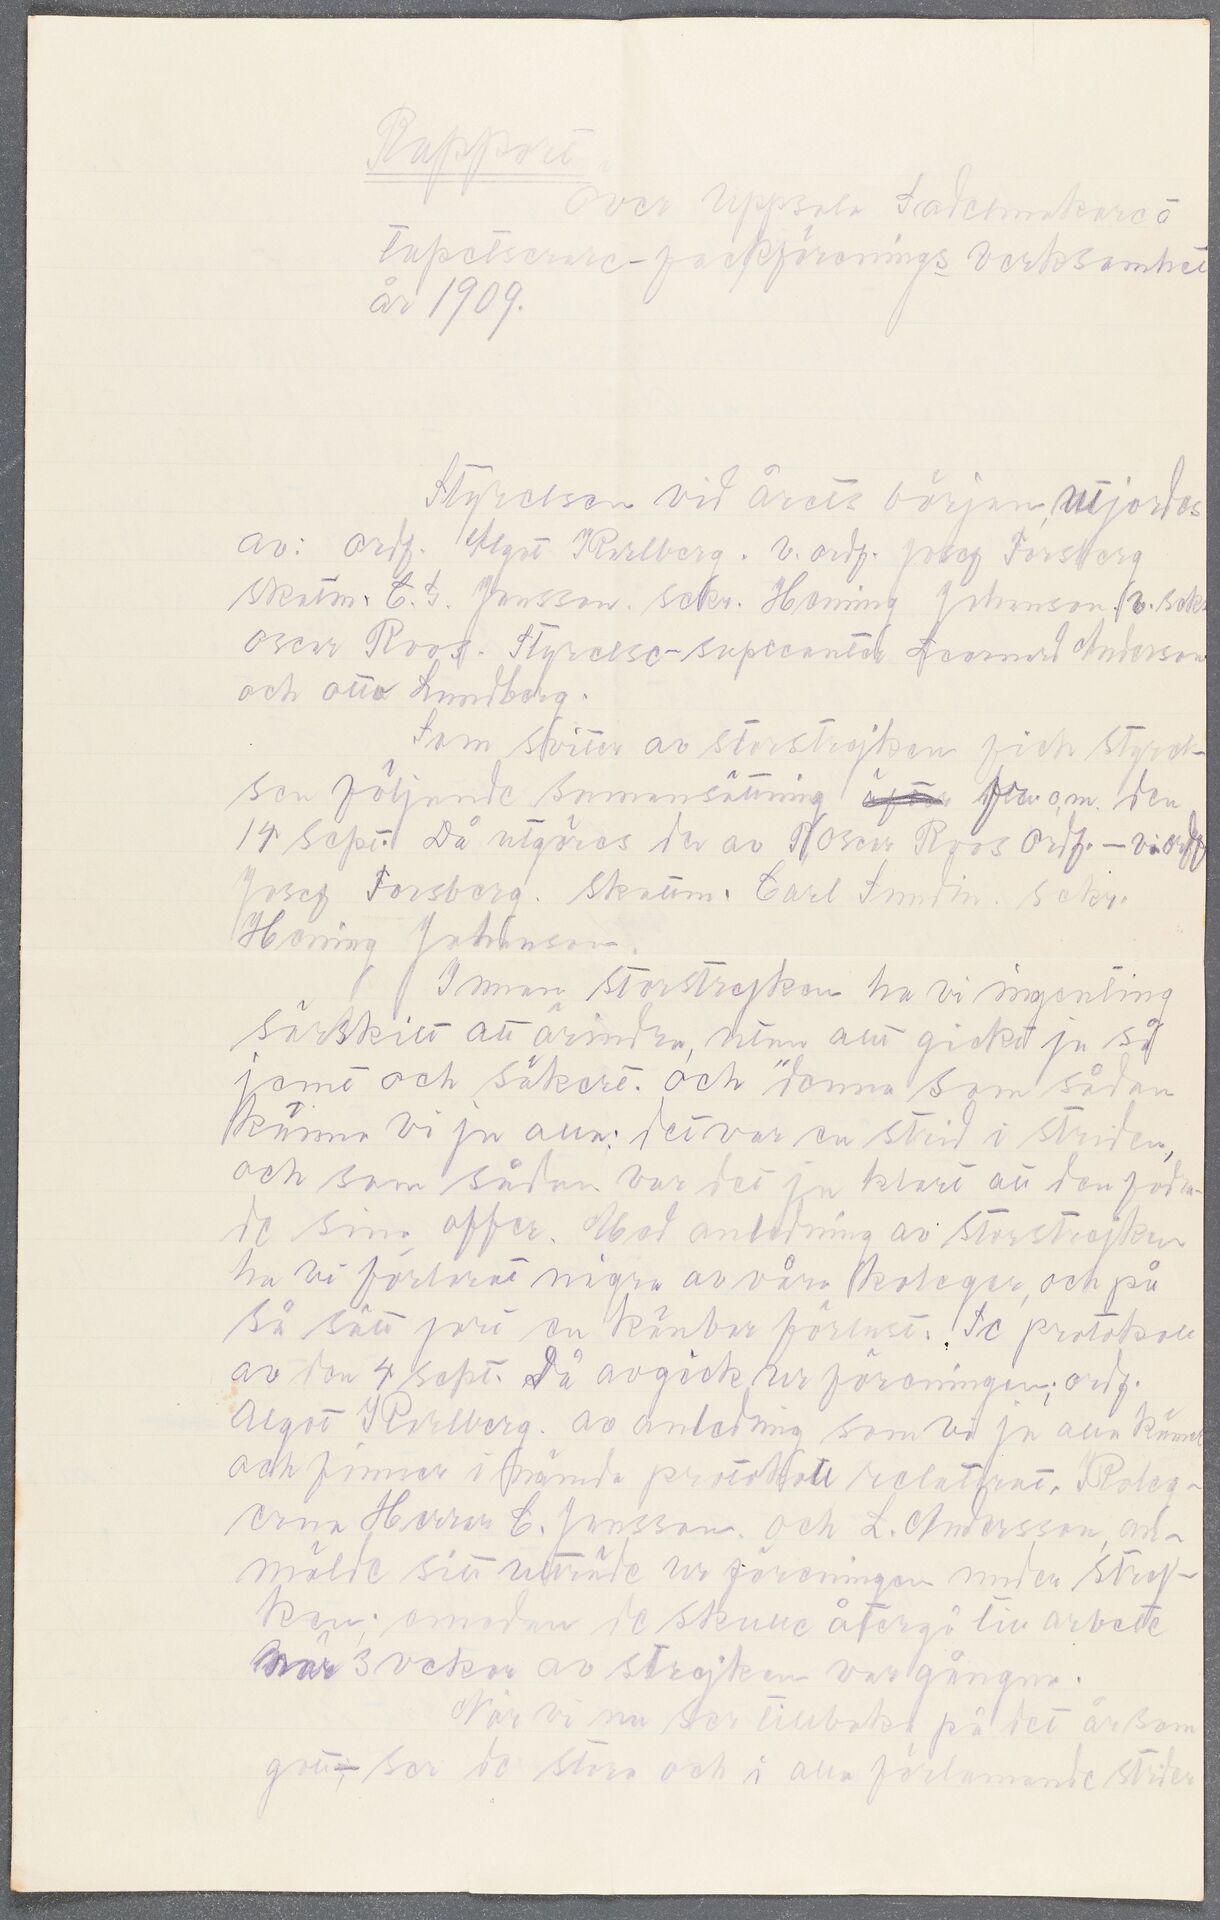 Rapport
över Uppsala Sadelmakare å
tapetserare-fackförenings verksamhet
år 1909.
Styrelsen vid årets början, utjordes
av: ordf. Algot Karlberg. v. ordf. Josef Forsberg
skattm. C. G. Jansson. sekr. Hening Johanson. v. sekr
Oscar Roos. Styrelse-supleanter Leonard Anderson
och Otto Lundberg.
Som sviter av storstrejken fick styrel-
sen följande samansättning fr. o. m. den
14 sept. Då utgöres den av Oscar Roos ordf. - v. ordf
Josef Forsberg. skattm. Carl Sundin. sekr.
Hening Johanson.
Innan storstrejken ha vi ingenting
särskilt att ärindra, utan allt gickt ju så
jemt och säkert. och denna som sådan
känna vi ju alla: det var en strid i striden,
och som sådan var det ju klart att den fodra-
de sina offer. Med anledning av storstrejken
ha vi förlorat några av våra kolegar, och på
så sätt jort en känbar förlust. Se protokoll
av den 4 sept. Då avgick ur föreningen; ordf.
Algot Karlberg. av anledning som vi ju alla känner
och finner i nämda protokoll relaterat. Koleg-
erna Herrar C. Jansson. och L. Andersson, an-
mälde sitt utträde ur föreningen under strej-
ken; emedan de skulle återgå till arbete
när 3 vekor av strejken var gångna.
När vi nu ser tillbaka på det år som
gått, ser de stora och i alla förlamande strider